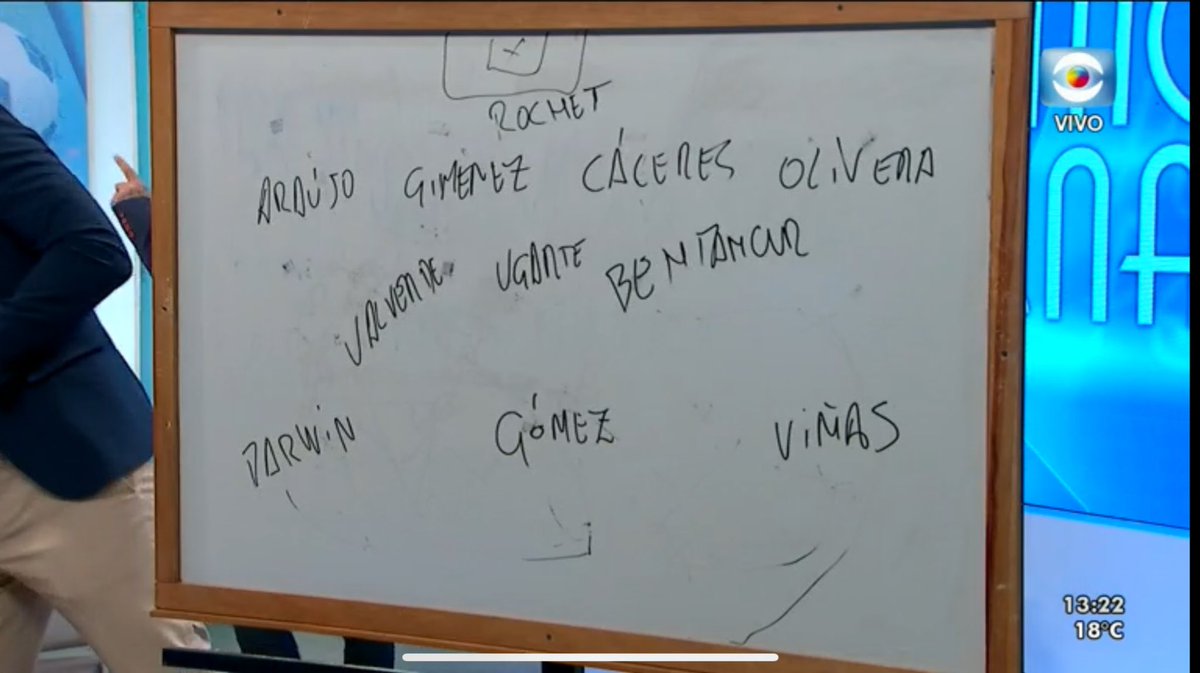 ROCHET
ARAÚJO GIMÉNEZ CÁCERES OLIVERA
VALVERDE UGARTE BENTANCUR
DARWIN GÓMEZ VIÑAS
VIVO
13:22
18°C